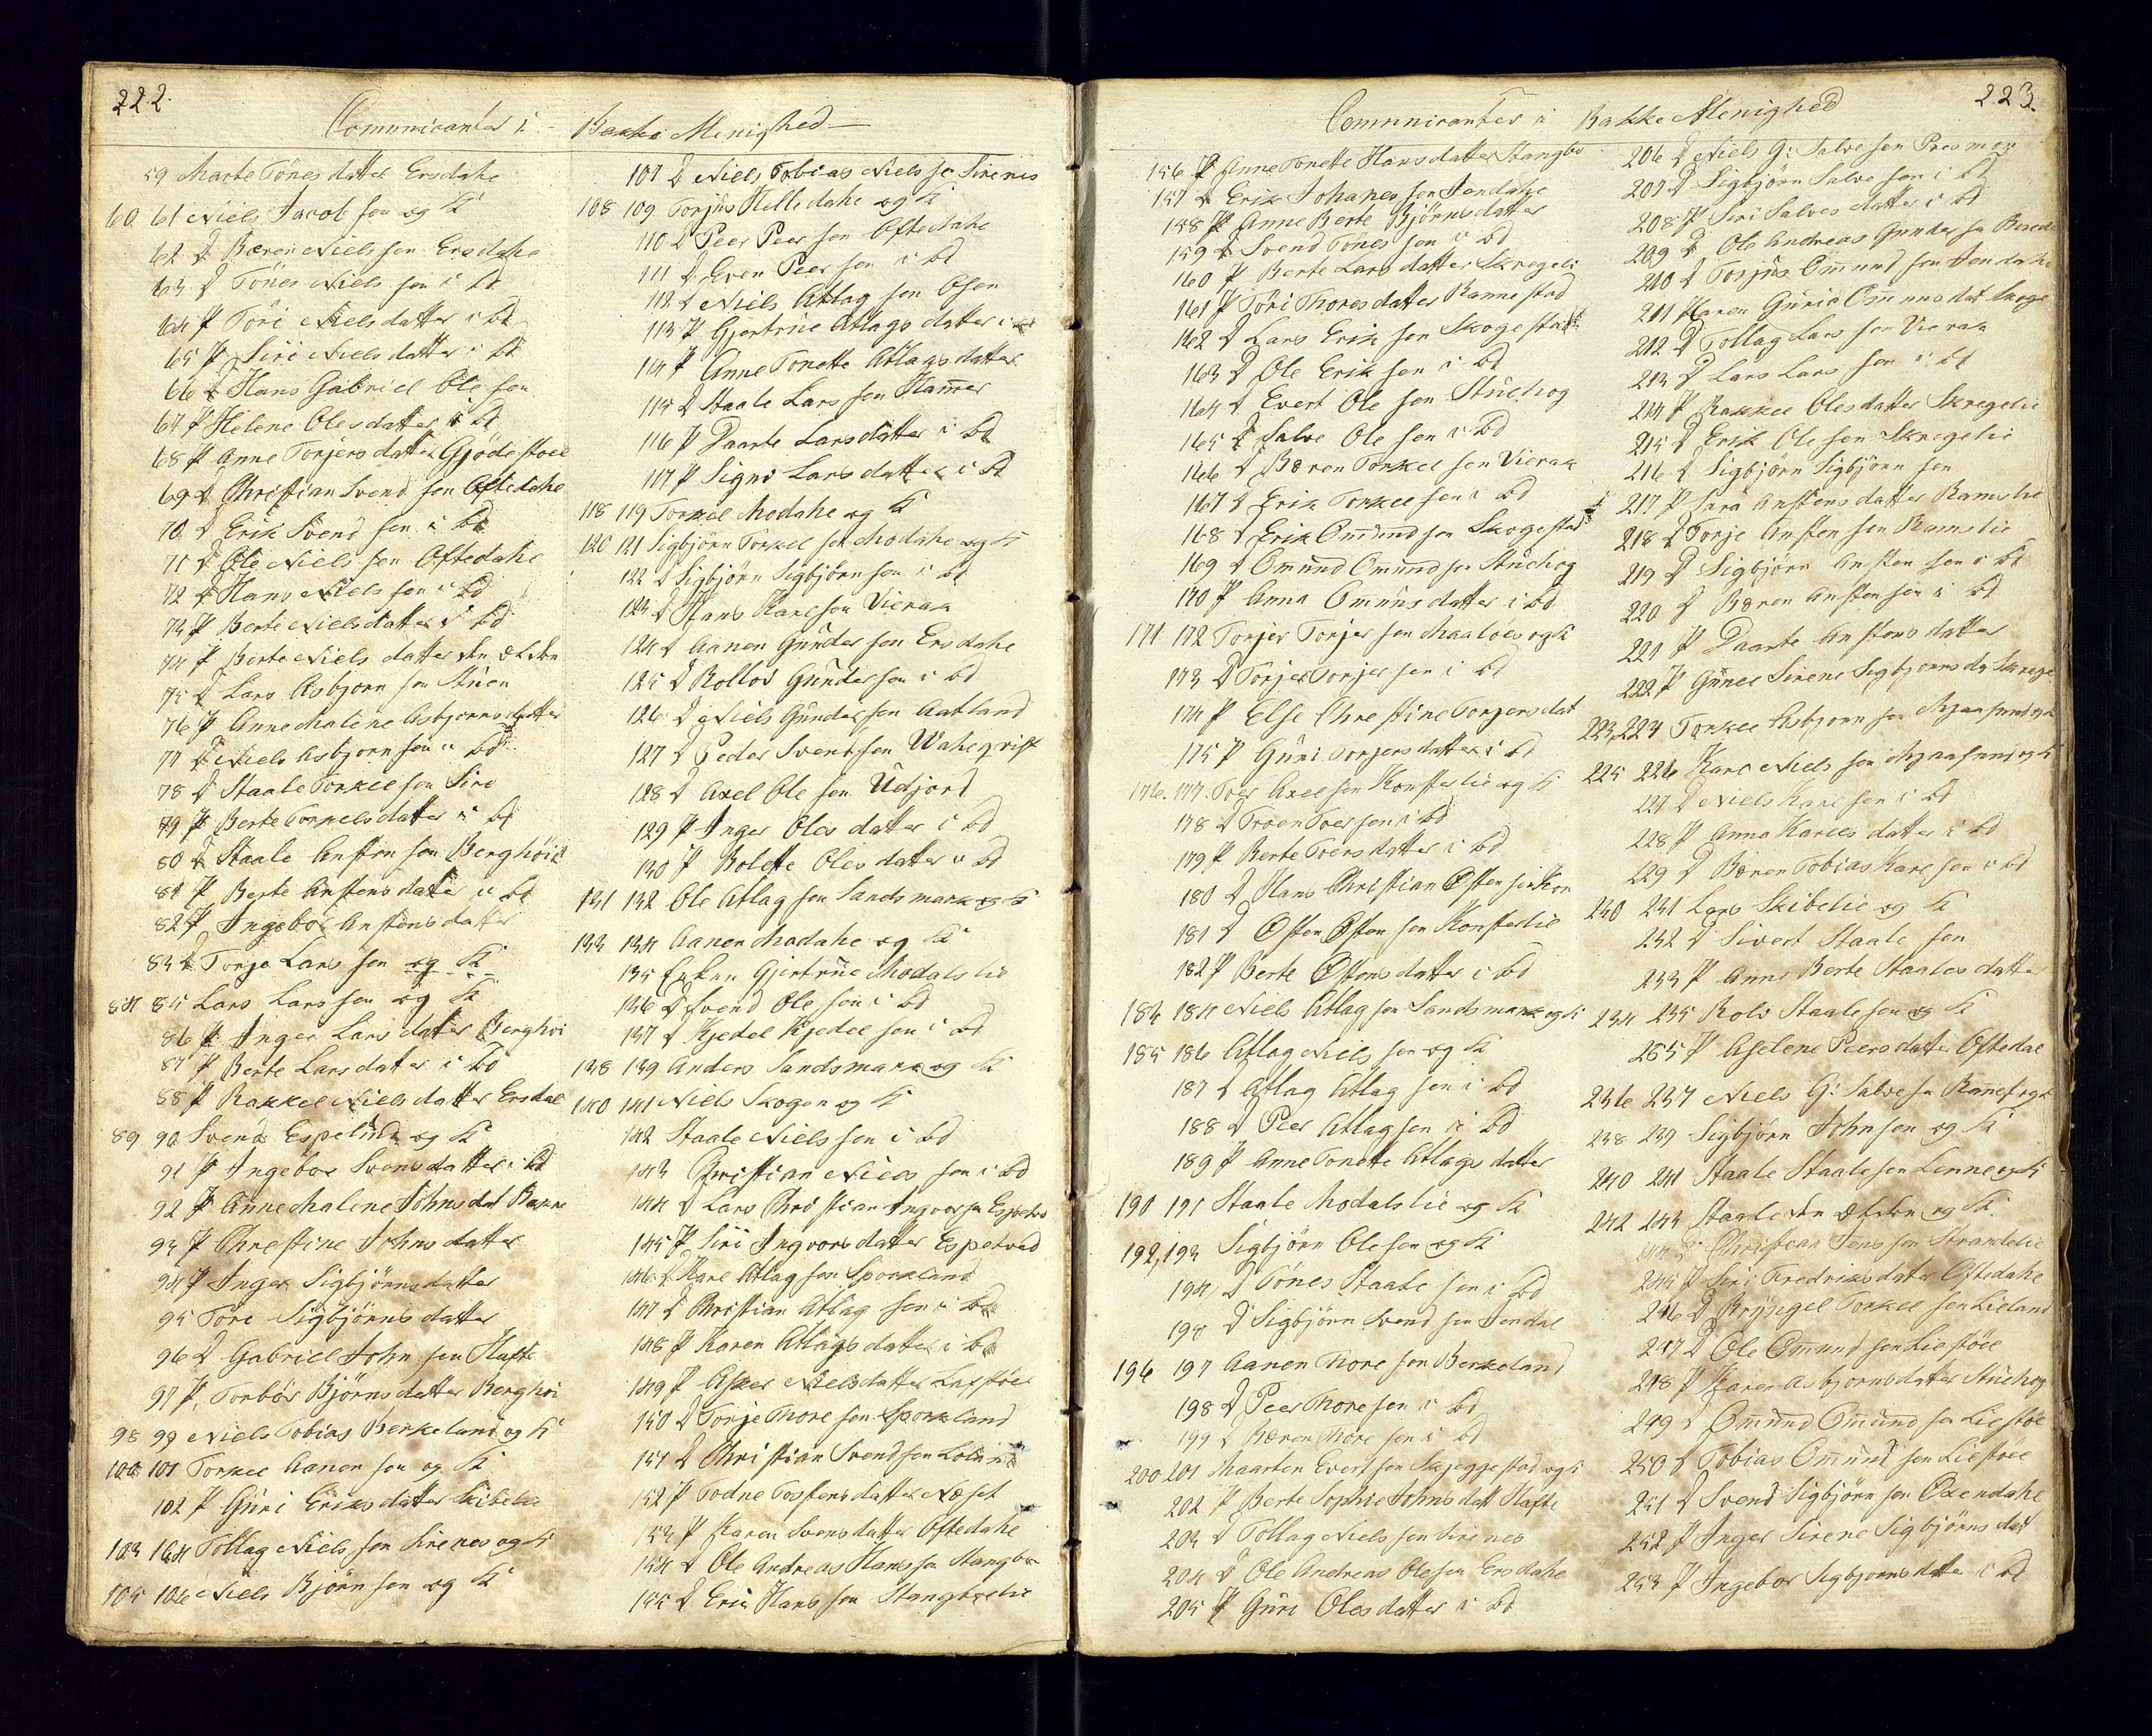 222.
Communicanter i Bakke Menighed
59 Marte Tönesdatter Ersdahe
60 61 Niels Jacobsen og K
62 D Bæren Nielssen Ersdahe
63 D Tönes Nielssen i bd
64 P Töri Nielsdatter i bd
65 P Siri Nielsdatter i bd
66 D Hans Gabriel Olesen
67 P Helene Olesdatter i bd
68 P Anne Torjersdatter Gjödestoel
69 D Christian Svendsen Oftedahe
70 D Erik Svendsen i bd
71 D Ole Nielssen Oftedahe
72 D Hans Nielssen i bd
73 P Berte Nielsdatter i bd
74 P Berte Nielsdatter
75 D Lars Asbjornsen
76 P Anne Malene Asbjornsdatter
77 D Niels Asbjornsen i bd
78 D Staale Torkelsen Sire
79 P Berte Torkelsdatter i bd
80 D Staale Anstensen Berghöie
81 P Berte Anstensdatter i bd
82 P Ingebor Anstensdatter
83 D Torje Larssen og K
84 85 Lars Larssen og K
86 P Inger Larsdatter Berghöi
87 P Berte Larsdatter i bd
88 P Rakkel Nielsdatter Ersdal
89 90 Svend Espelund og K
91 P Ingebor Svensdatter i bd
92 P Anne Malene Johnsdat Bakke
93 P Chrestine Johnsdatter
94 P Inger Sigbjörnsdatter
95 Tore Sigbjörnsdatter
96 D Gabriel Johnsen Hafte
97 P Torbör Björnsdatter Berghöi
98 99 Niels Tobias Berkeland og K
100 101 Torkel Aanensen og K
102 P Güri Eriksdatter Skibelie
103 104 Tollag Nielssen Sirenes og K
105 106 Niels Björnsen og K
107 D Niels Tobias Nielssen Sirenes
108 109 Torjus Helledahe og K
110 D Peer Peersen Oftedahe
111 D Even Peersen i bd
112 D Niels Atlagsen Osen
113 P Gjertrüe Atlagsdatter i bd
114 P Anne Tonette Atlagsdatter
115 D Staale Larssen Hammer
116 P Daarte Larsdatter i bd
117 P Signi Larsdatter i bd
118 119 Torkel Modahe og K
120 121 Sigbjörn Torkelsen Modahe og K
122 D Sigbjörn Sigbjörnsen i bd
123 D Hans Karlsen Vierak
124 D Aanen Gundersen Ersdahe
125 D Rollov Gundersen i bd
126 D Niels Gundersen Aatland
127 D Peder Svendsen Waheqvist
128 D Axel Olesen Udjord
129 P Inger Olesdatter i bd
130 P Bolette Olesdatter i bd
131 132 Ole Atlagsen Sandsmark og K
133 134 Aanen Modahe og K
135 Enken Gjertrüe Modalslie
136 D Svend Olesen i bd
137 D Kjedel Kjedelsen i bd
138 139 Anders Sandsmark og K
140 141 Niels Skogen og K
142 Staale Nielssen i bd
143 Christian Nielssen i bd
144 D Lars Christian Ingvorsen Espetvedt
145 P Siri Ingvorsdatter Espetved
146 D Karl Atlagsen Sporkland
147 D Christian Atlagsen i bd
148 P Karen Atlagsdatter i bd
149 P Asser Nielsdatter
150 D Torje Thoresen Sporkland
151 D Christian Svendsen
152 P Todne Tostensdatter Næset
153 P Karen Svensdatter Oftedahe
154 D Ole Andreas Hanssen Stangbor
155 D Erik Hanssen Stangborlie
223.
Communicanter i Bakke Menighed
156 P Anne Tonette Hansdatter Stangbo
157 D Erik Johanessen Jendahe
158 P Anne Berte Björnsdatter
159 D Svend Tönessen i bd
160 P Berte Larsdatter Skregeli
161 P Töri Thoresdatter Rannestad
162 D Lars Eriksen Skogestad
163 D Ole Eriksen i bd
164 D Evert Olesen Stuehog
165 D Salve Olesen i bd
166 D Bæren Torkelsen Vierak
167 D Erik Torkelsen i bd
168 D Erik Omundsen Skogestad
169 D Omund Omundsen Stuehog
170 P Anna Omunsdatter i bd
171 172 Torjer Torjersen Maaloes og K
173 D Torjer Torjersen i bd
174 P Else Chrestine Torjersdat
175 P Güni Torjersdatter i bd
176. 177. Toer Axelsen Konstelie og K
178 D Troen Toersen i bd
179 P Berte Toersdatter i bd
180 D Hans Christian Ostensen Kon
181 D Osten Ostensen Konstelie
182 P Berte Ostensdatter i bd
183 184 Niels Atlagsen Sandsmark og K
185 186 Atlag Nielssen og K
187 D Atlag Atlagsen i bd
188 D Peer Atlagsen i bd
189 P Anne Tonette Atlagsdatter
190 191 Staale Modalslie og K
192, 193 Sigbjörn Olesen og K
194, D Tönes Staalesen i bd
195 D Sigbjörn Svendsen Jendal
196 197 Aanen Thoresen Berkeland
198 D Peer Thoresen i bd
199 D Bæren Thoresen i bd
200 201 Maarten Evertsen Skjeggestad og K
202 P Berte Sophie Johnsdatt Hafte
203 D Tollag Nielssen Sirenes
204 D Ole Andreas Olesen Ersdahe
205 P Güri Olesdatter i bd
206 D Niels G: Salvesen Presman
207 D Sigbjörn Salvesen i bd
208 P Siri Salvesdatter i bd
209 D Ole Andreas Gundersen
210 D Torjus Omundsen Jendahe
211 Karen Gurie Omunsdat Skoge
212 D Tollag Larssen Vierak
213 D Lars Larssen i bd
214 P Rakkel Olesdatter Skregelie
215 D Erik Olesen Skregelie
216 D Sigbjörn Sigbjörnsen
217 P Sara Anstensdatter Ramslie
218 D Torje Anstensen Ramslie
219 D Sigbjörn Anstensen i bd
220 D Bæren Anstensen i bd
221 P Daarte Anstensdatter
222 P Gunel Sirene Sigbjornsd Skrege
223, 224 Torkel Asbjornsen Mgaasund og K
225 226 Karl Nielssen Mgaasund og K
227 D Niels Karlsen i bd
228 P Anna Karlsdatter i bd
229 D Bæren Tobias Karlsen i bd
230 231 Lars Skibelie og K
232 D Sivert Staalesen
233 P Anne Berte Staalesdatter
234 235 Rolv Staalesen og K
265 P Aselene Peersdatter Oftedal
236 237 Niels G: Salvesen og K
238 239 Sigbjörn Johnsen og K
240 241 Staale Staalesen Lenne og K
242 243 Staale og K.
244 D Christian Jenssen Strandelie
245 P Siri Fredriksdatter Oftedahe
246 D Bryngel Torkelsen Lieland
247 D Ole Omundsen Liestöel
248 P Karen Asbjornsdatter Stuehog
249 D Omund Omundsen Liestöel
250 D Tobias Omundsen Liestöel
251 D Svend Sigbjörnsen Oxendahe
252 P Inger Sirene Sigbjörnsdat
253 P Ingebor Sigbjornsdatter i bd